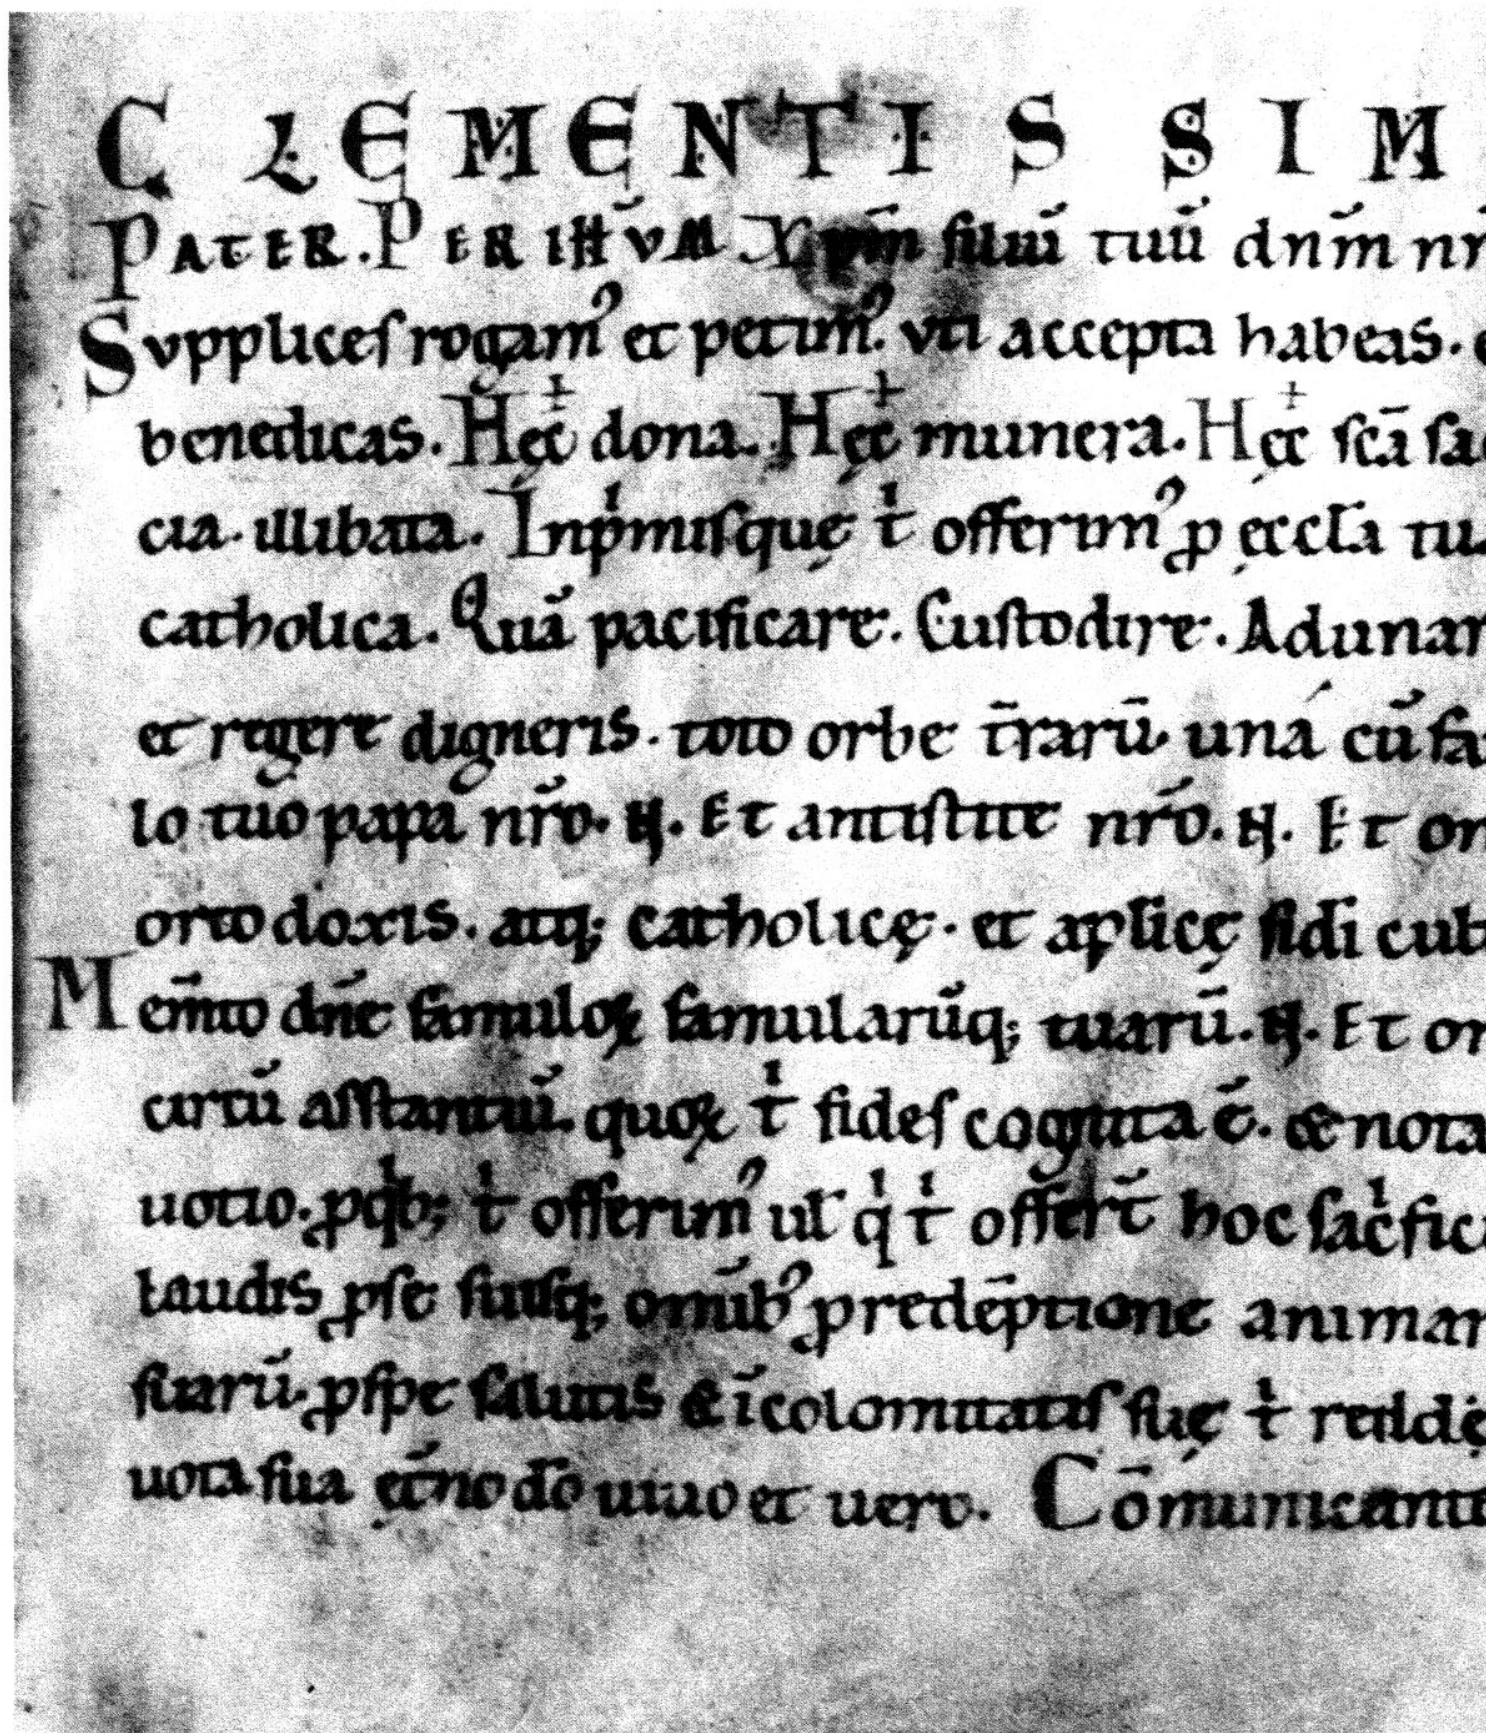 CLEMENTISSIM
PATER. PER IHV̄M Xp̄m filiū tuū dn̄m nr̄
Supplices rogam᾽ et petim᾽. vti accepta habeas. e
benedicas. Hęc ☩ dona. Hęc ☩ munera. Hęc ☩ sc̄a sac
cia. illibata. Inpͥmisquę tͥ offerim᾽ ꝓ ęccl̄a tua
catholica. Quā pacificare. Custodire. Adunar
et regere digneris. toto orbe t̄rarū. uná cū fa
lo tuo papa nr̄o. N. Et antistite nr̄o. N. Et om
ortodoxis. atq; catholicę. et apl̄icę fidi cult
Mem̄to dn̄e famuloꝝ famularūq; tuarū. N. Et om
cirtū asstantiū. quoꝝ tͥ fides cognita ē. & nota
uotio. ꝓ qͥb; tͥ offerim᾽ ul̄ qͥ tͥ offer̄t hoc sacͥfici
laudis ꝓ se suisq; om̄ib᾽ ꝓ redēptione animar
suarū. ꝓ spe salutis & īcolomitatis suę tͥ reddē
uota sua ęt̄no dō uiuo et uero. Cōmunicante